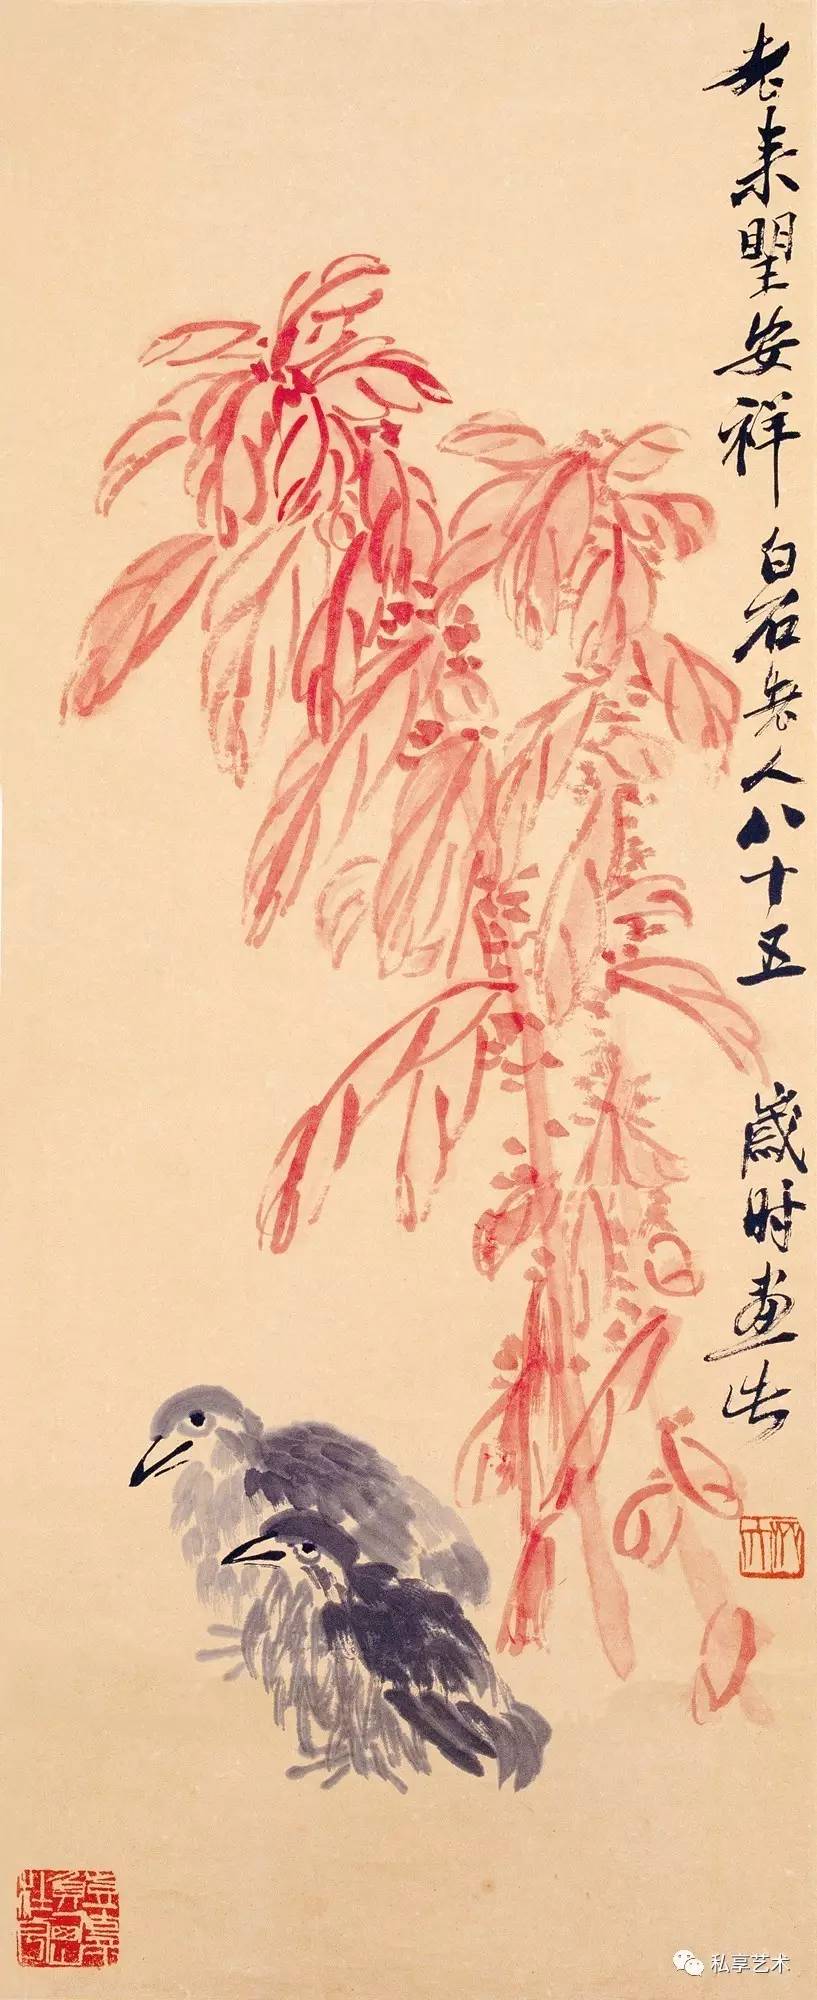 老来望安祥 白石老人八十五 歲时畫此
私享艺术